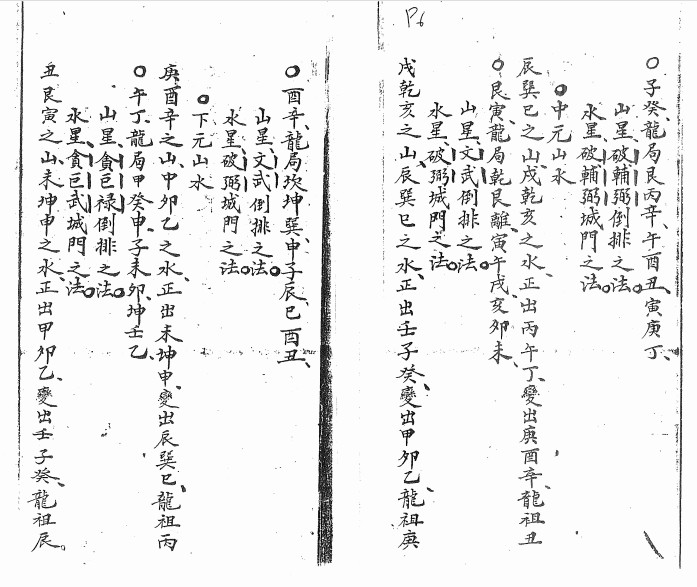 P6
○子癸、龍局艮丙辛、午酉丑、寅庚丁、
山星破輔弼倒排之法。○
水星破輔弼城門之法。
○中元山水
辰巽巳之山戌乾亥之水、正出丙午丁、變出庚酉辛、龍祖丑
○艮寅、龍局乾艮離、寅午戌、亥卯未、
山星文武倒排之法。○
水星破弼城門之法。
戌乾亥之山、辰巽巳之水、正出壬子癸、變出甲卯乙、龍祖庚
○酉辛、龍局坎坤巽、申子辰、巳酉丑、
山星文武倒排之法。○
水星破弼城門之法。
○下元山水
庚酉辛之山甲卯乙之水、正出未坤申、變出辰巽巳、龍祖丙
○午丁、龍局甲癸申、子未卯、坤壬乙、
山星貪巨祿倒排之法。○
水星貪巨武城門之法。
丑艮寅之山、未坤申之水、正出甲卯乙、變出壬子癸、龍祖辰。